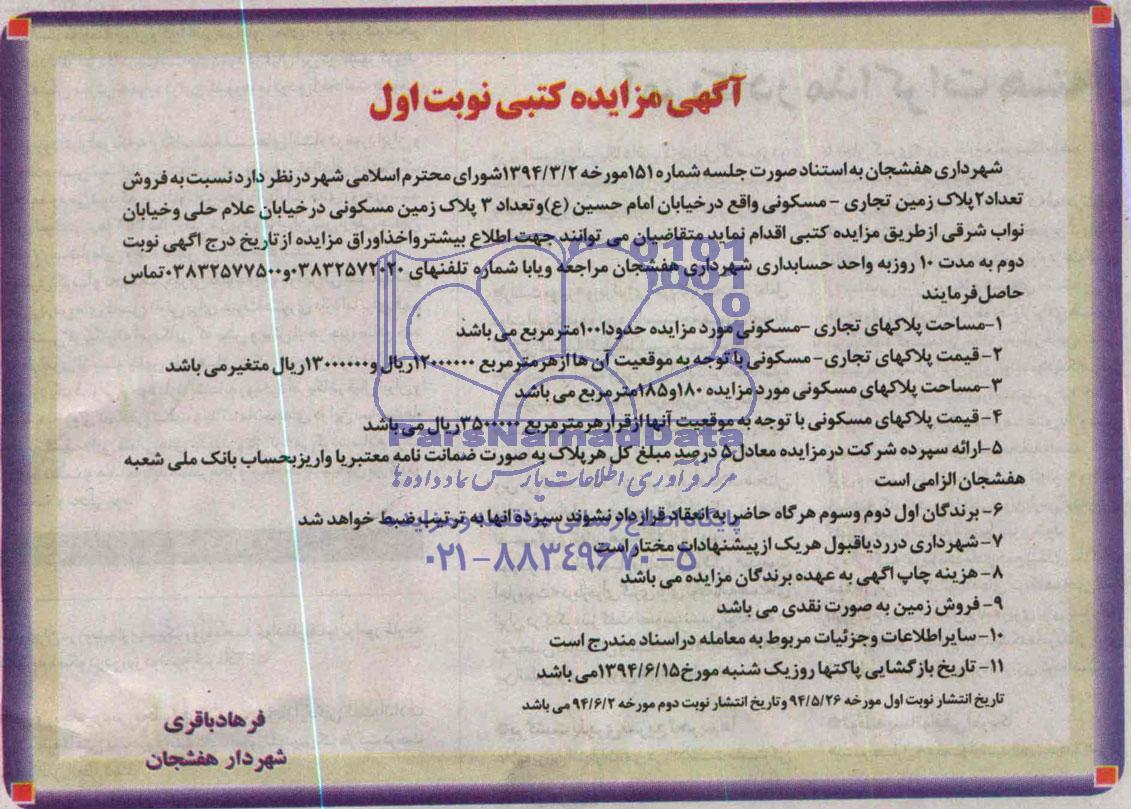 آگهی مزایده کتبی نوبت اول
شهرداری هفشجان به استناد صورت جلسه شماره ۱۵۱مورخه ۱۳۹۴/۳/۲شورای محترم اسلامی شهردرنظر دارد نسبت به فروش
تعداد۲پلاک زمین تجاری - مسکونی واقع درخیابان امام حسین (ع)وتعداد ۳ پلاک زمین مسکونی درخیابان علام حلی وخیابان
نواب شرقی ازطریق مزایده کتبی اقدام نماید متقاضیان می توانند جهت اطلاع بیشترواخذاوراق مزایده ازتاریخ درج اگهی نوبت
دوم به مدت ۱۰ روزبه واحد حسابداری شهرداری هفشجان مراجعه ویابا شماره تلفنهای ۰۳۸۳۲۵۷۲۰۲۰و۰۳۸۳۲۵۷۷۵۰۰تماس
حاصل فرمایند
۱-مساحت پلاکهای تجاری -مسکونی مورد مزایده حدودا۱۰۰مترمربع می باشد
۲- قیمت پلاکهای تجاری- مسکونی با توجه به موقعیت آن ها ازهرمترمربع ۱۲۰۰۰۰۰۰ریال و۱۳۰۰۰۰۰۰ریال متغیرمی باشد
۳-مساحت پلاکهای مسکونی مورد مزایده ۱۸۰و۱۸۵مترمربع می باشد
۴- قیمت پلاکهای مسکونی با توجه به موقعیت آنها ازقرارهرمترمربع ۳۵۰۰۰۰۰ریال می باشد
ParsNamadData
۵-ارائه سپرده شرکت درمزایده معادل۵ درصد مبلغ کل هرپلاک به صورت ضمانت نامه معتبریا واریزبحساب بانک ملی شعبه
هفشجان الزامی است
مرکز فرآوری اطلاعات پارس نماد داده ها
۶- برندگان اول دوم وسوم هرگاه حاضر به انعقاد قرارداد نشوند سپرده انها به ترتیب ضبط خواهد شد
پایگاه اطلاع رسانی مناقصه و مزایده
۷- شهرداری درردیاقبول هریک ازپیشنهادات مختاراست
۰۲۱-۸۸۳۴۹۶۷۰-۵
۸- هزینه چاپ اگهی به عهده برندگان مزایده می باشد
۹- فروش زمین به صورت نقدی می باشد
۱۰- سایراطلاعات وجزئیات مربوط به معامله دراسناد مندرج است
۱۱- تاریخ بازگشایی پاکتها روزیک شنبه مورخ۱۳۹۴/۶/۱۵می باشد
تاریخ انتشار نوبت اول مورخه ۹۴/۵/۲۶ وتاریخ انتشار نوبت دوم مورخه ۹۴/۶/۲ می باشد
فرهادباقری
شهردار هفشجان